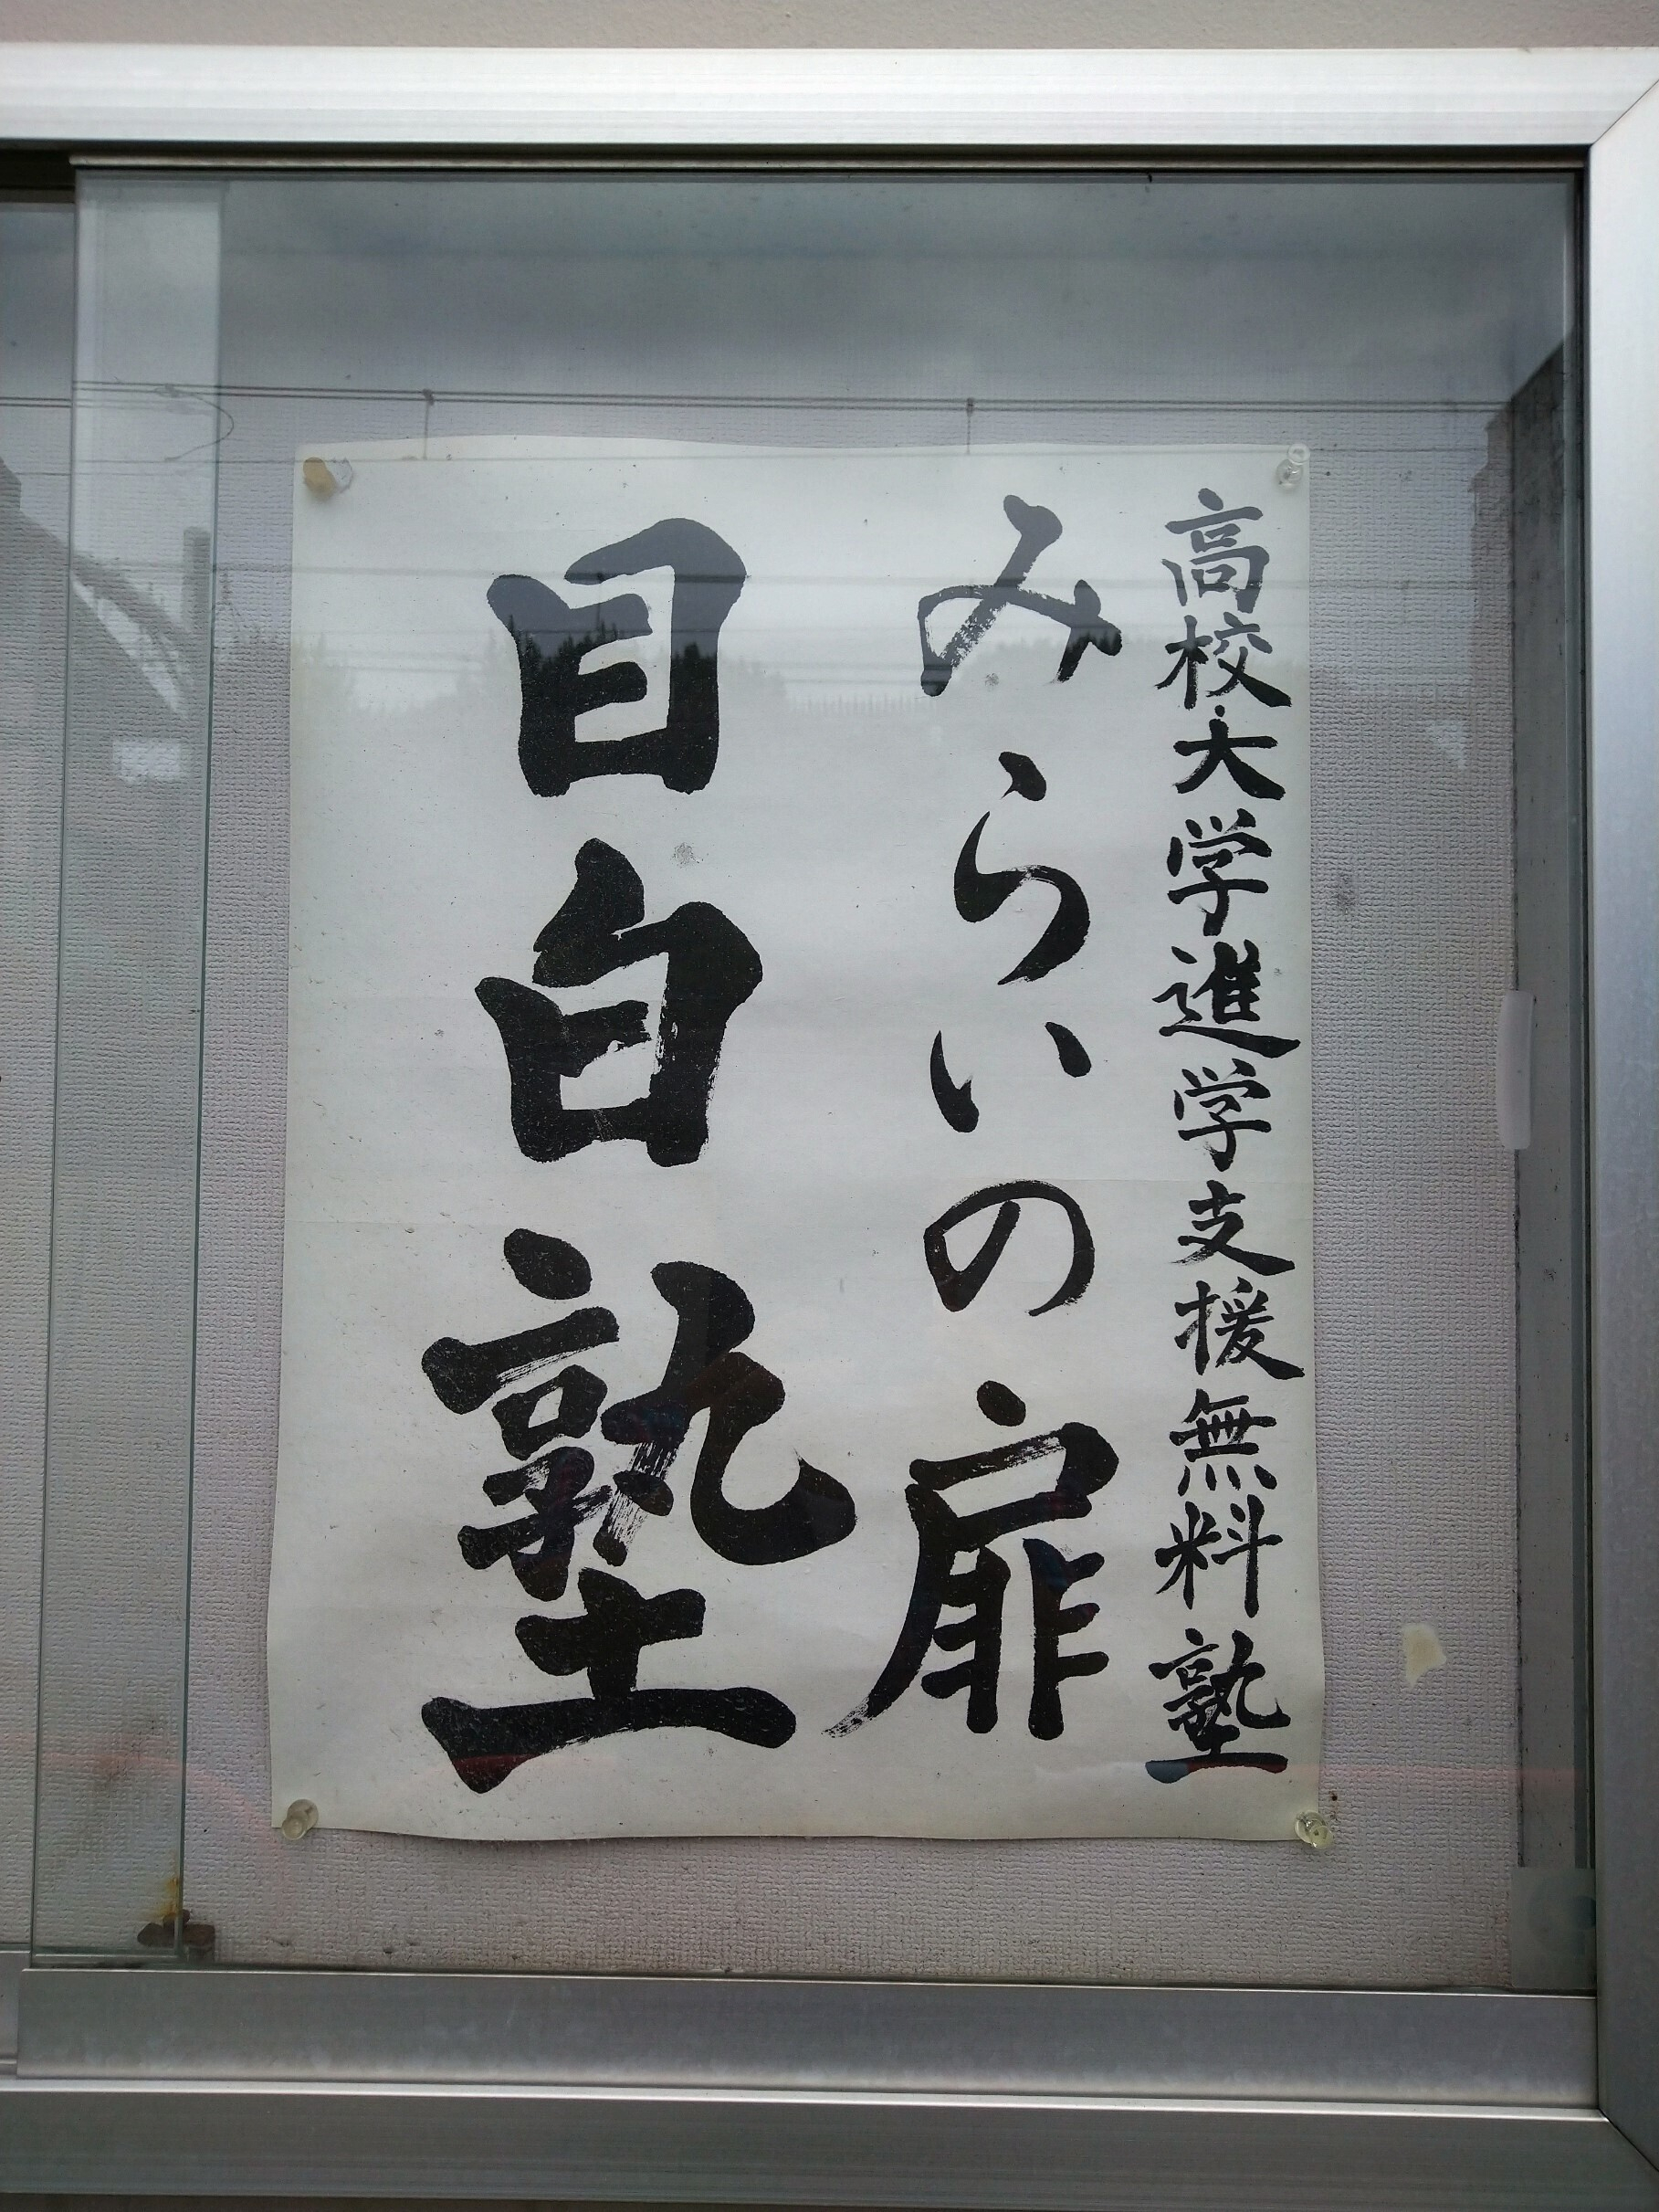 高校大学進学支援無料塾
みらいの扉
目白塾